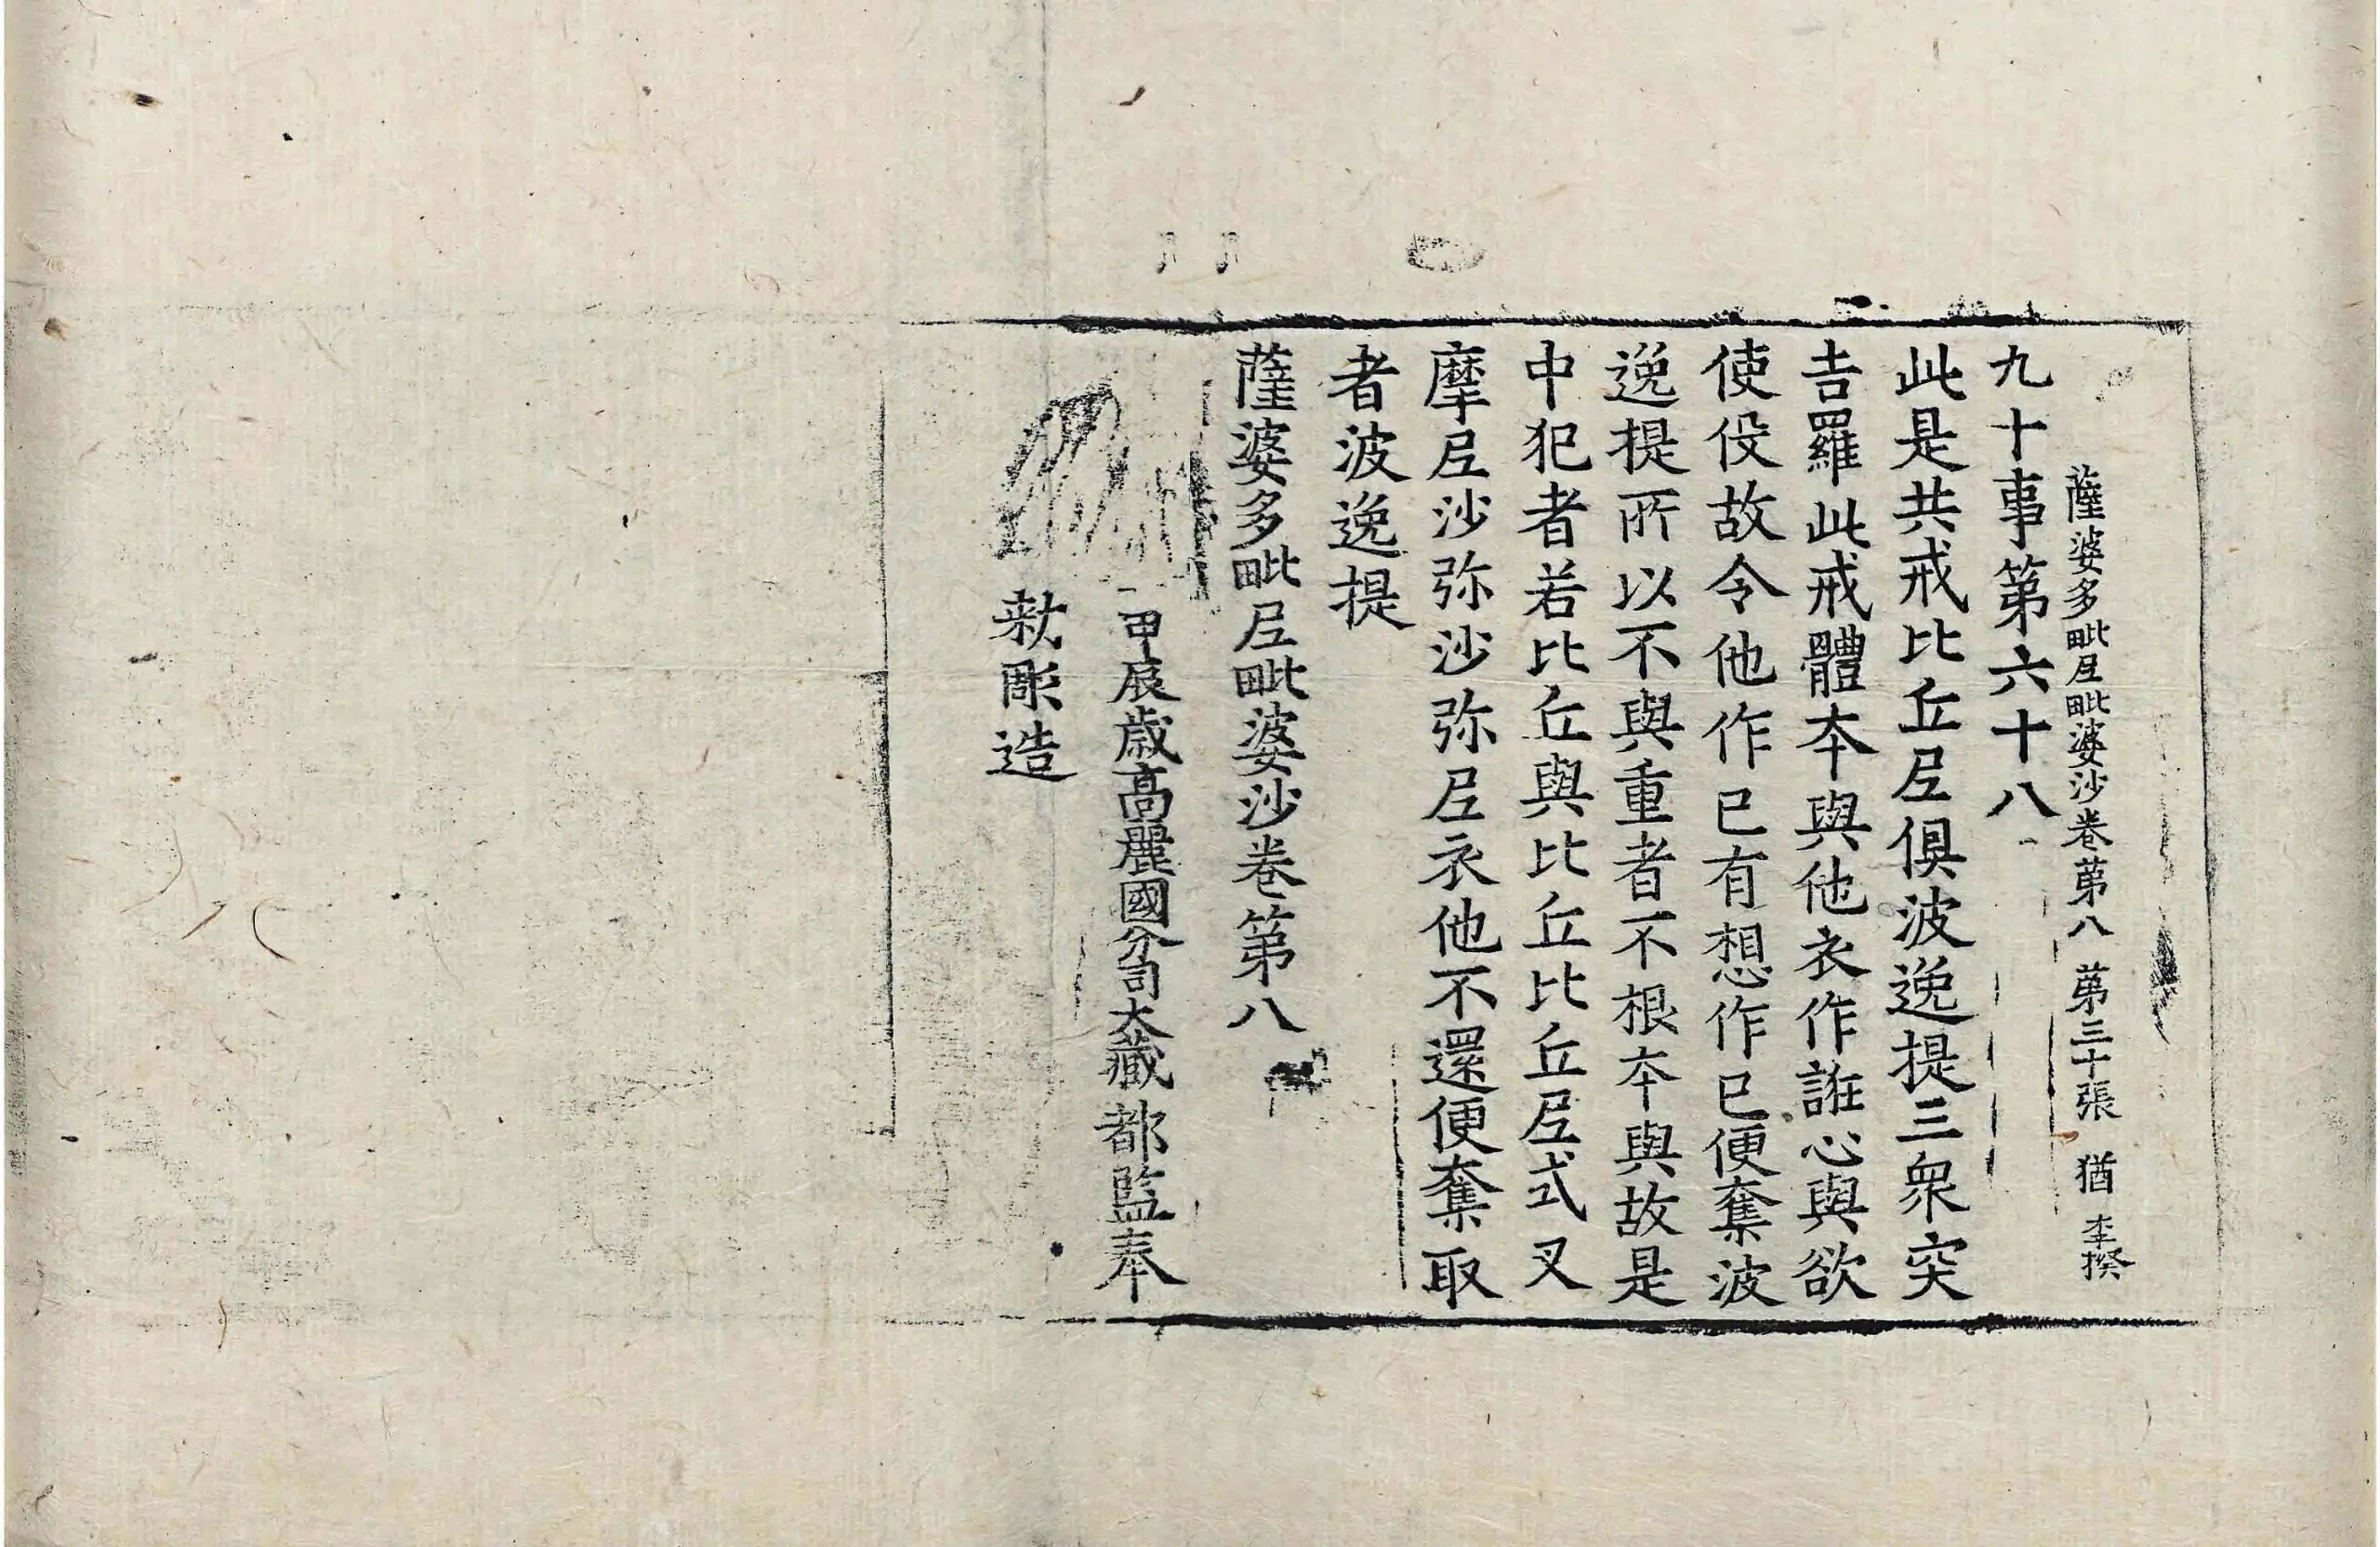 薩婆多毗尼毗婆沙卷第八 第三十張 猶 李揆
九十事第六十八
此是共戒比丘尼俱波逸提三衆突
吉羅此戒體本與他衣作誑心與欲
使役故令他作已有想作已便奪波
逸提所以不與重者不根本與故是
中犯者若比丘與比丘比丘尼式叉
摩尼沙弥沙弥尼衣他不還便奪取
者波逸提
薩婆多毗尼毗婆沙卷第八
甲辰歳高麗國分司大藏都監奉
勑彫造